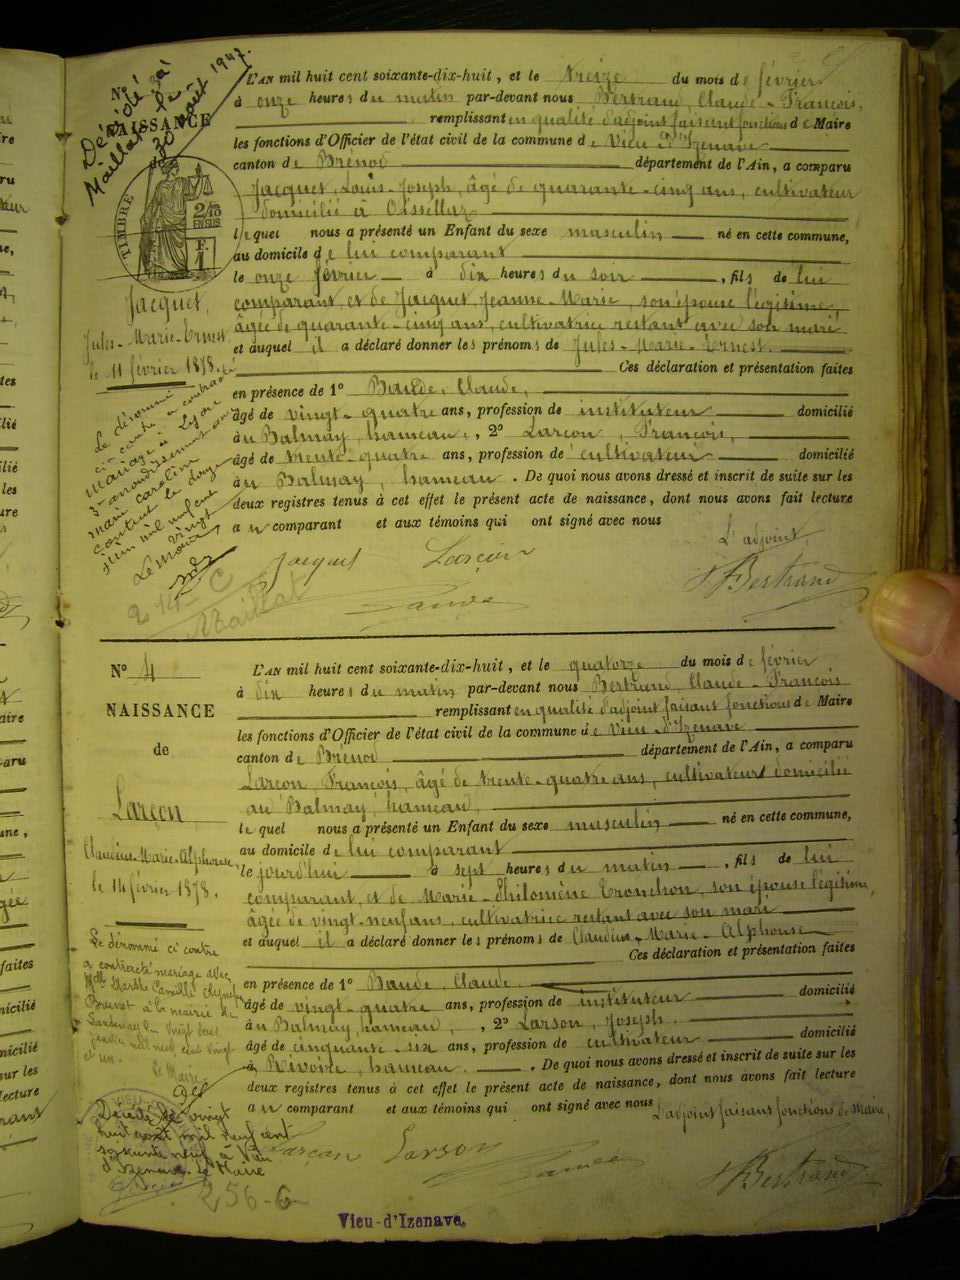 Nº
NAISSANCE
Décédé à
Maillat le
30 août 1947.
TIMBRE
2/10
EN SUS
Jacquet,
Jules-Marie-Ernest
le 11 février 1878.
Le dénommé
ci-contre a contracté
mariage à Lyon
3e arrondissement avec
Marie Caroline
le douze
juin mil neuf cent
vingt
Le Maire
L'AN mil huit cent soixante-dix-huit, et le treize du mois de février
à onze heures du matin par-devant nous Bertrand, Claude-François,
remplissant en qualité d'adjoint faisant fonctions de Maire
les fonctions d'Officier de l'état civil de la commune de Vieu-d'Izenave
canton de Brénod département de l'Ain, a comparu
Jacquet, Louis-Joseph, âgé de quarante-cinq ans, cultivateur
domicilié à Oissellaz
lequel nous a présenté un Enfant du sexe masculin né en cette commune,
au domicile de lui comparant
le onze février à dix heures du soir, fils de lui
comparant, et de Jacquet, Jeanne-Marie, son épouse légitime,
âgée de quarante-cinq ans, cultivatrice restant avec son mari
et auquel il a déclaré donner les prénoms de Jules-Marie-Ernest.
Ces déclaration et présentation faites
en présence de 1º Baude, Claude,
âgé de vingt-quatre ans, profession de instituteur domicilié
au Balmay, hameau, 2º Larçon, François,
âgé de trente-quatre ans, profession de cultivateur domicilié
au Balmay, hameau. De quoi nous avons dressé et inscrit de suite sur les
deux registres tenus à cet effet le présent acte de naissance, dont nous avons fait lecture
au comparant et aux témoins qui ont signé avec nous
L'adjoint,
Jacquet Larçon Bertrand
Baude
Maillat
Nº 4
NAISSANCE
de
Larçon
Claudius-Marie-Alphonse,
le 14 février 1878.
Le dénommé ci contre
a contracté mariage avec
Mlle Marthe Camille
Brunet à la mairie de
le vingt deux
mil neuf cent vingt
et un.
Le Maire
Décédé le vingt
huit août mil neuf cent
soixante neuf à Vieu
d'Izenave. Le Maire
256-6
L'AN mil huit cent soixante-dix-huit, et le quatorze du mois de février
à dix heures du matin par-devant nous Bertrand, Claude-François
remplissant en qualité d'adjoint faisant fonctions de Maire
les fonctions d'Officier de l'état civil de la commune de Vieu-d'Izenave
canton de Brénod département de l'Ain, a comparu
Larçon François, âgé de trente-quatre ans, cultivateur domicilié
au Balmay, hameau,
lequel nous a présenté un Enfant du sexe masculin né en cette commune,
au domicile de lui comparant
le jourd'hui à sept heures du matin, fils de lui
comparant, et de Marie-Philomène Tronchon, son épouse légitime,
âgée de vingt-neuf ans, cultivatrice restant avec son mari
et auquel il a déclaré donner les prénoms de Claudius-Marie-Alphonse
Ces déclaration et présentation faites
en présence de 1º Baude, Claude
âgé de vingt-quatre ans, profession de instituteur domicilié
au Balmay, hameau, 2º Larson, Joseph.
âgé de cinquante-six ans, profession de cultivateur domicilié
à Rivoire, hameau. De quoi nous avons dressé et inscrit de suite sur les
deux registres tenus à cet effet le présent acte de naissance, dont nous avons fait lecture
au comparant et aux témoins qui ont signé avec nous L'adjoint faisant fonctions de Maire,
Larçon Larson Baude Bertrand
Vieu-d'Izenave.